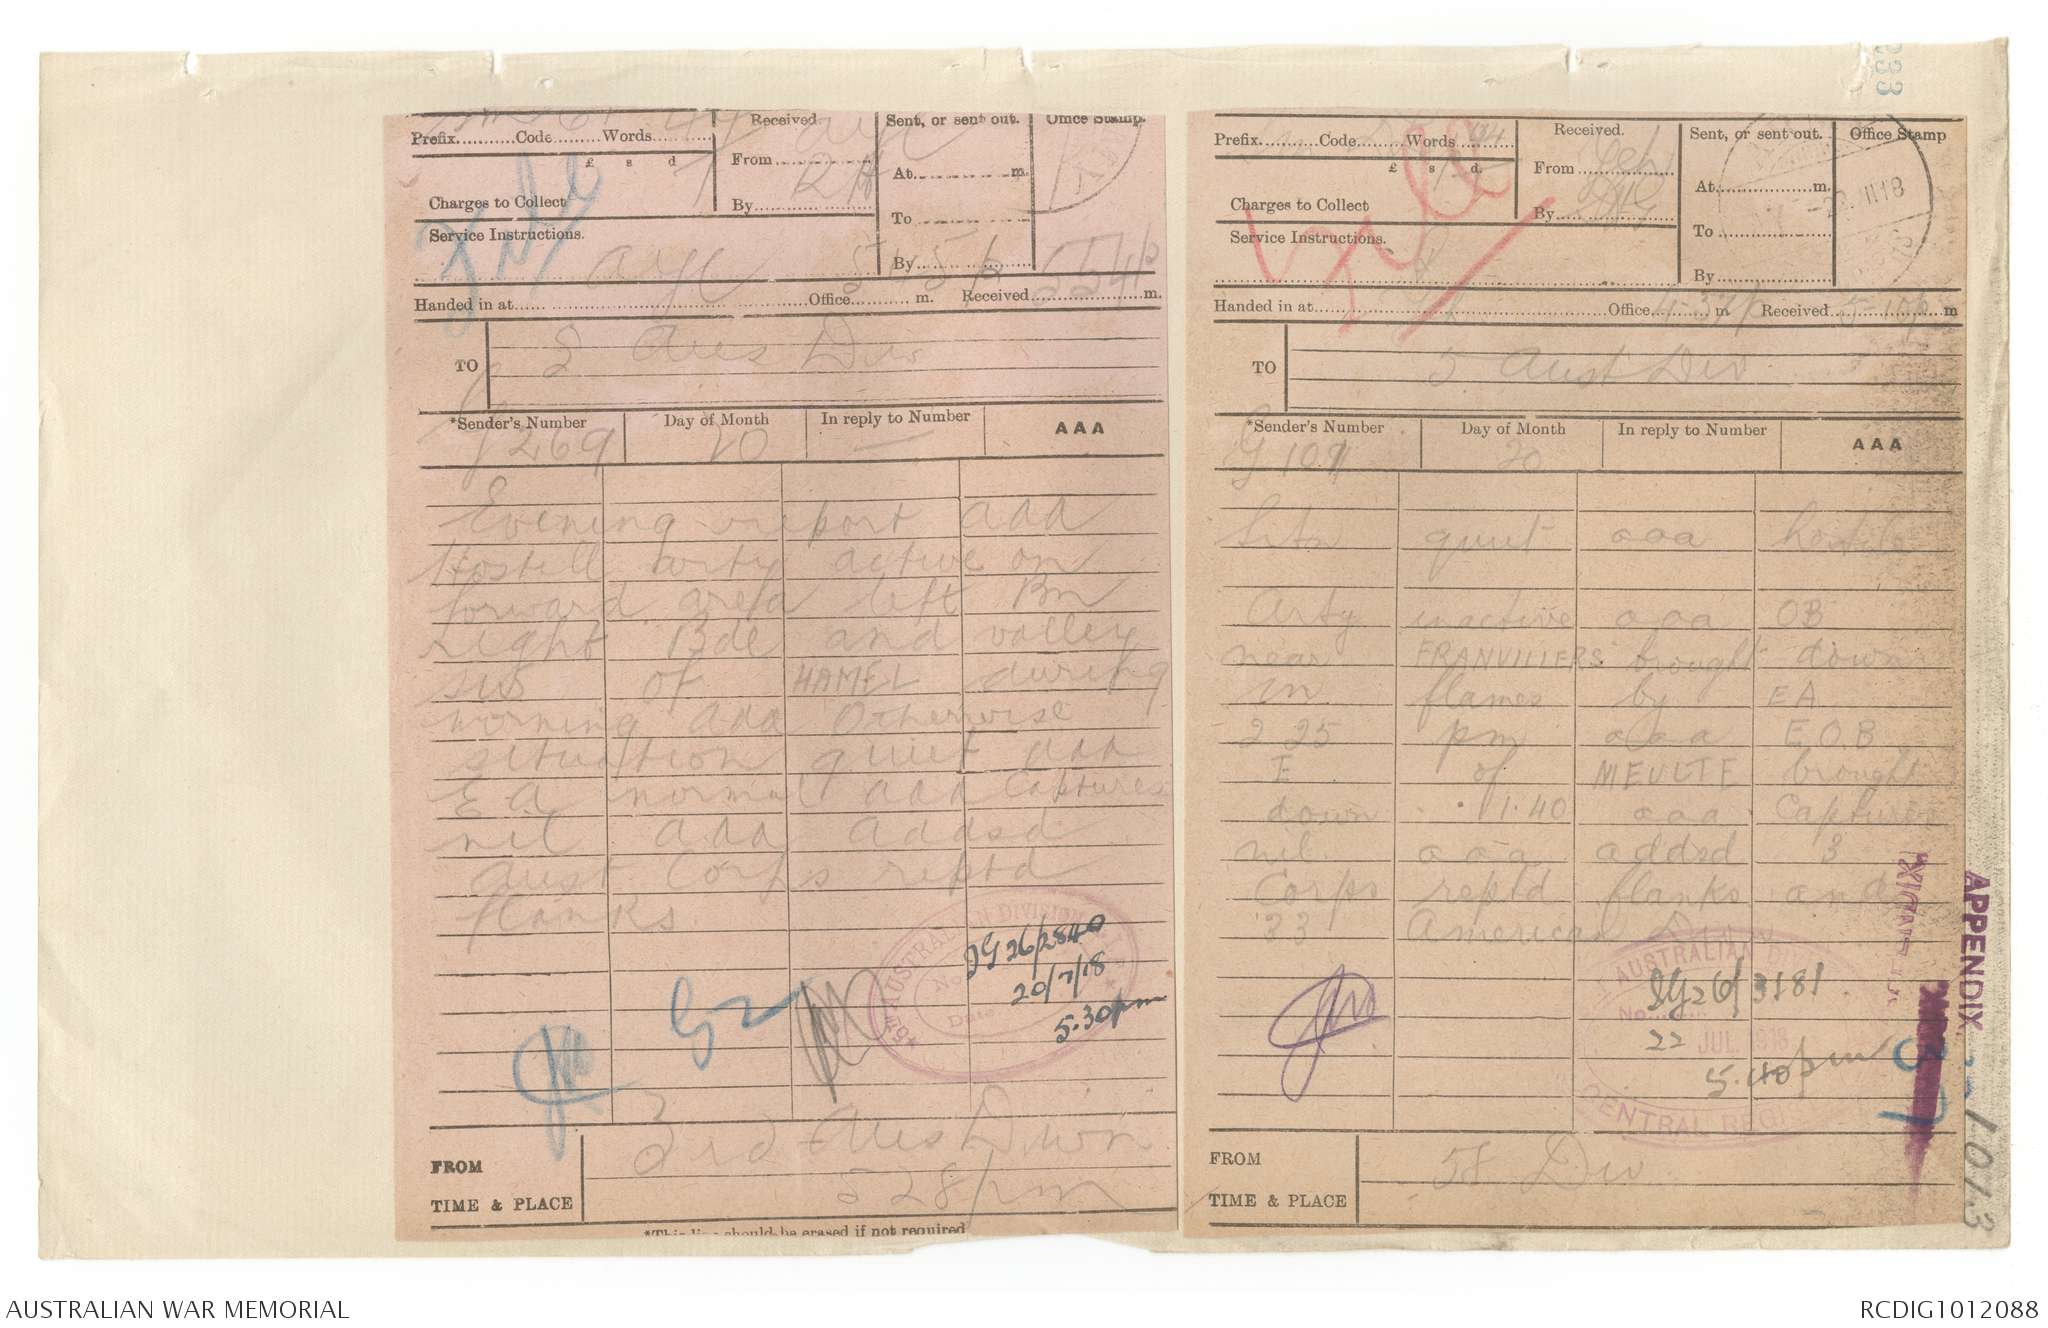 Prefix..........Code........Words............
£ s d
Charges to Collect
Received.
From
By
Sent, or sent out.
At m.
To
By
Office Stamp.
Service Instructions.
ayc 5 45 p
Handed in at Office m. Received 554p m.
TO
5 Aus Div
*Sender's Number
Day of Month
In reply to Number
AAA
G 269
20
—
Evening report aaa
Hostill arty active on
forward area left Bn
right Bde and valley
SW of HAMEL during
morning aaa Otherwise
situation quiet aaa
E A normal aaa Captures
nil aaa addsd
Aust Corps reptd
flanks.
AUSTRALIAN DIVISION
No.
Date
IG 26/2840
20/7/18
5.30pm
FROM
3rd Aus Divn
TIME & PLACE
5 28 pm
*This line should be erased if not required
Prefix..........Code........Words 94
£ s d.
Charges to Collect
Received.
From
By
Sent, or sent out.
At m.
To
By
Office Stamp
Service Instructions.
Handed in at Office 4-37p m Received 5-10p m
TO
5 Aust Div
*Sender's Number
Day of Month
In reply to Number
AAA
20
Sitn quiet aaa hostile
Arty inactive aaa OB
near FRANVILLERS brought down
in flames by EA
2 25 pm aaa E.O.B
E of MEULTE brought
down 11.40 aaa Captures
nil. aaa addsd 3
Corps reptd flanks and
33 American Div
AUSTRALIAN DI
No.
IG 26/3181
22 JUL 1918
5.40pm
CENTRAL REGIS
FROM
58 Div
TIME & PLACE
APPENDIX
37
1013
333
AUSTRALIAN WAR MEMORIAL
RCDIG1012088